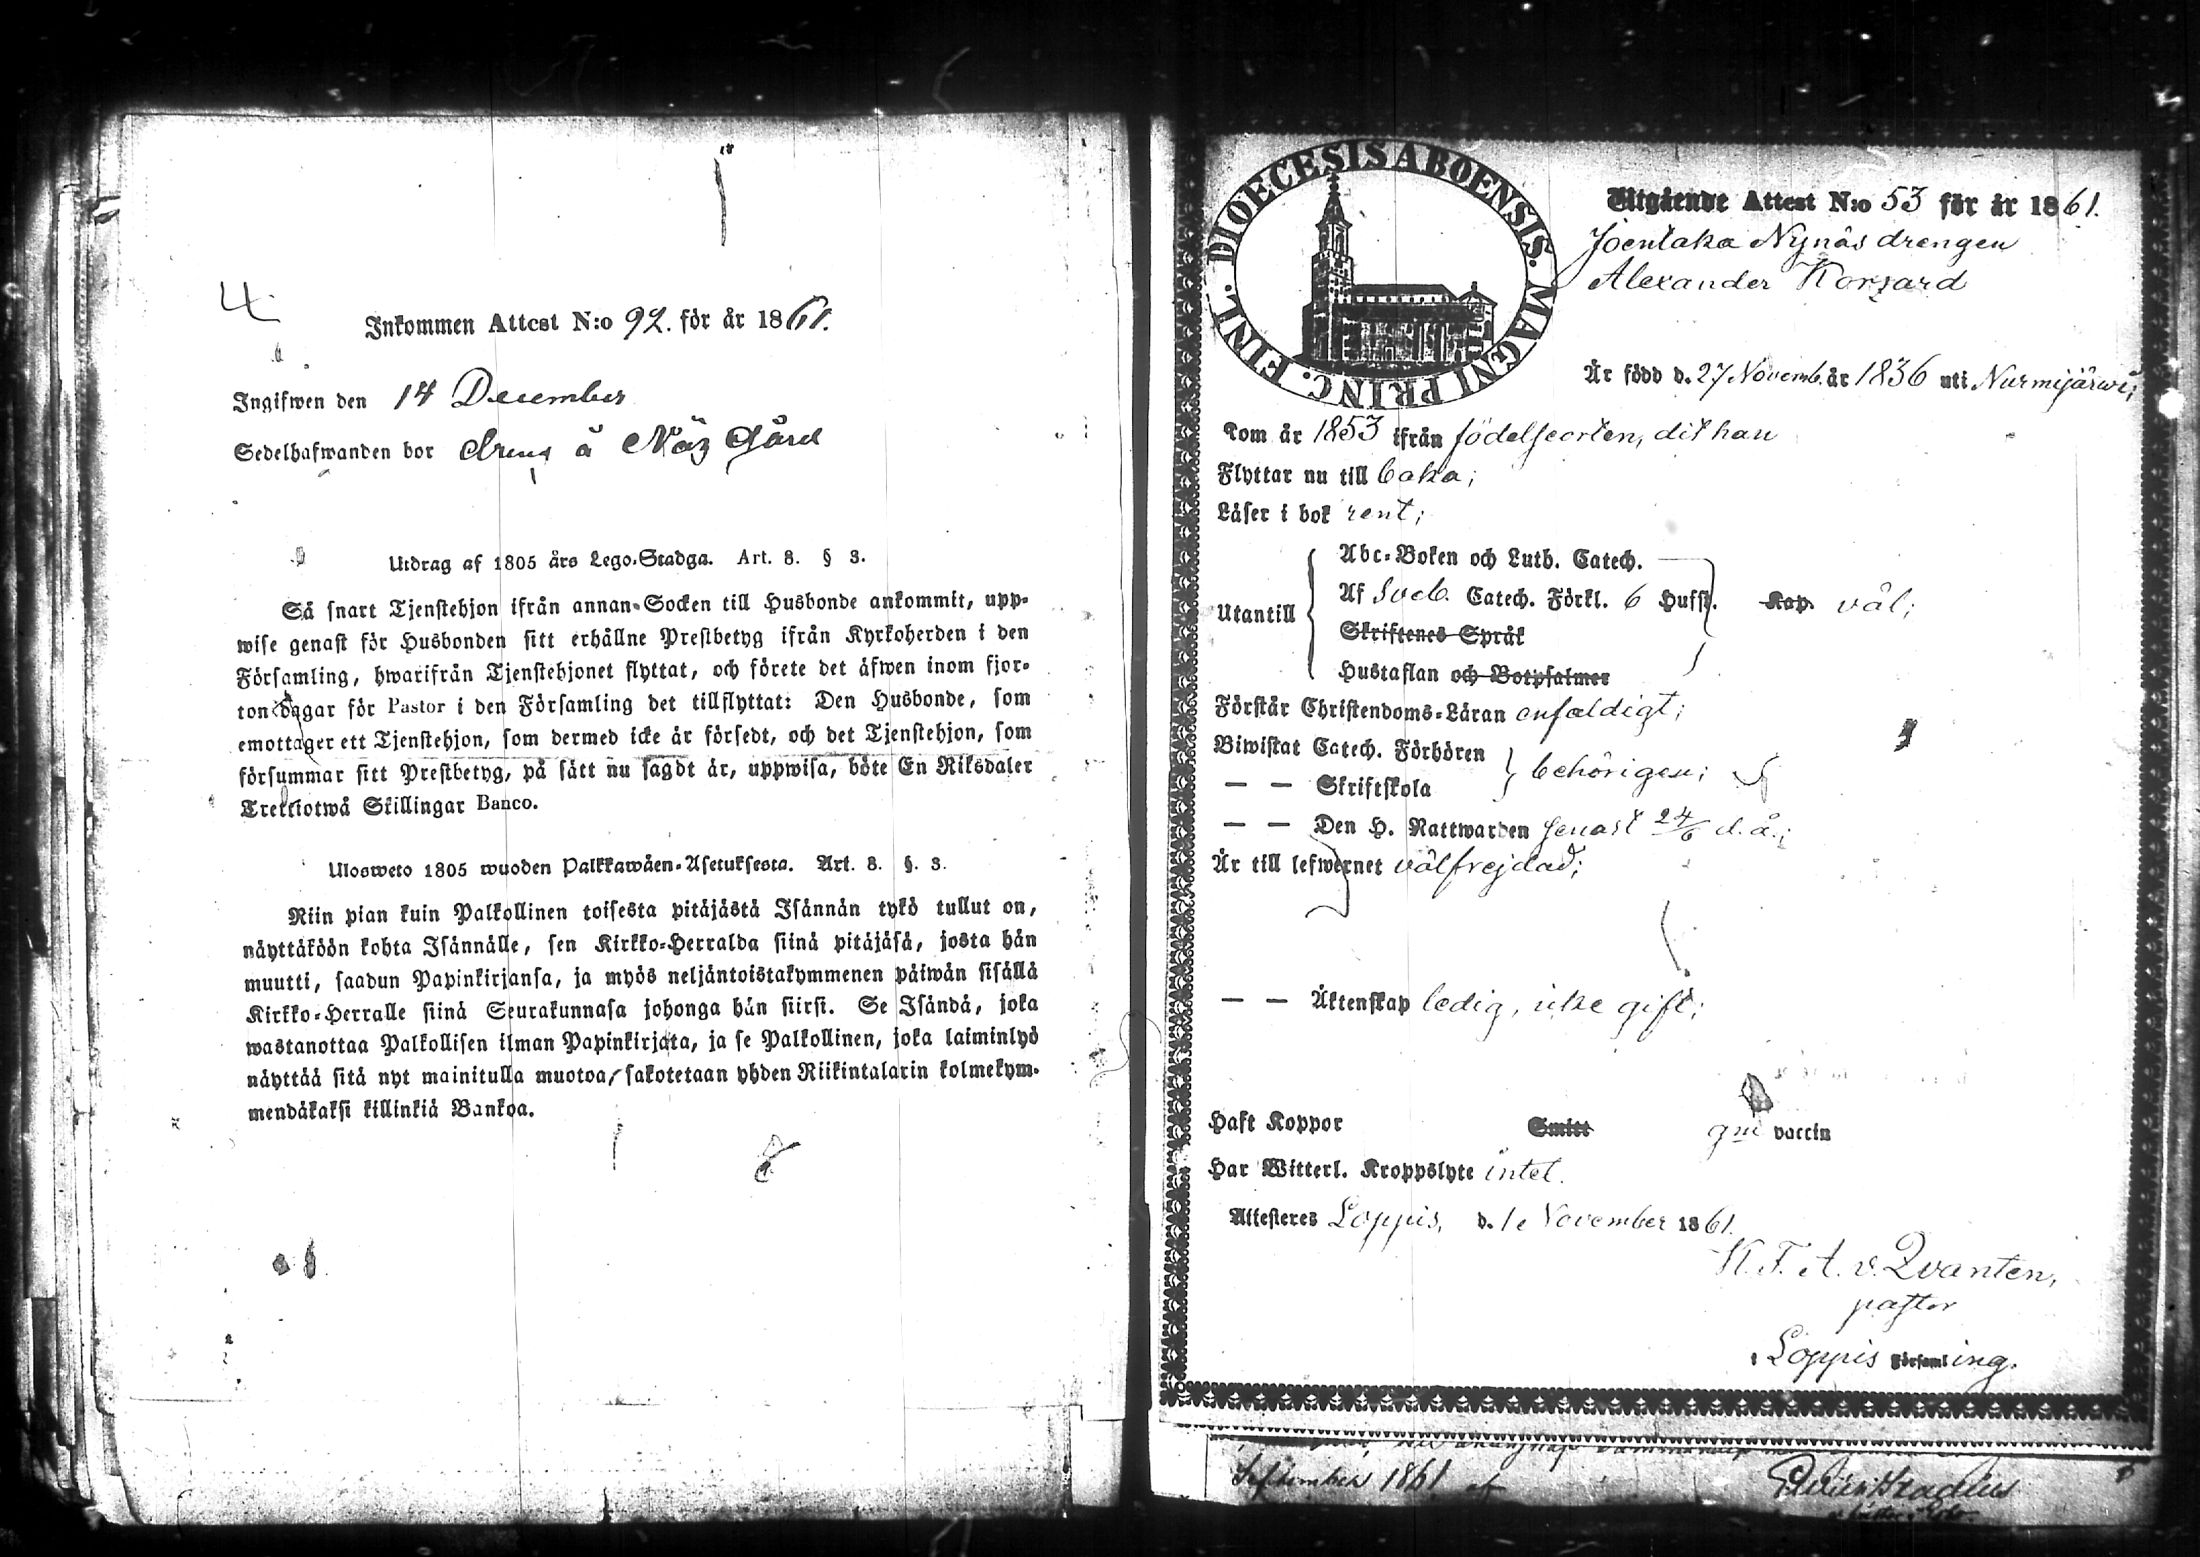 4.
Inkommen Attest N:o 92. för år 1861.
Ingifwen den 14 December
Sedelhafwanden bor dreng å Näs Gård
Utdrag af 1805 års Lego-Stadga. Art. 8. § 3.
Så snart Tjenstehjon ifrån annan Socken till Husbonde ankommit, upp-
wise genast för Husbonden sitt erhållne Prestbetyg ifrån Kyrkoherden i den
Församling, hwarifrån Tjenstehjonet flyttat, och förete det äfwen inom fjor-
ton dagar för Pastor i den Församling det tillflyttat: Den Husbonde, som
emottager ett Tjenstehjon, som dermed icke är försedt, och det Tjenstehjon, som
försummar sitt Prestbetyg, på sätt nu sagdt är, uppwisa, böte En Riksdaler
Trettiotwå Skillingar Banco.
Ulosweto 1805 wuoden Palkkawäen-Asetuksesta. Art. 8. §. 3.
Niin pian kuin Palkollinen toisesta pitäjästä Isännän tykö tullut on,
näyttäköön kohta Isännälle, sen Kirkko-Herralda siinä pitäjäsä, josta hän
muutti, saadun Papinkirjansa, ja myös neljäntoistakymmenen päiwän sisällä
Kirkko-Herralle siinä Seurakunnasa johonga hän siirsi. Se Isändä, joka
wastanottaa Palkollisen ilman Papinkirjata, ja se Palkollinen, joka laiminlyö
näyttää sitä nyt mainitulla muotoa, sakotetaan yhden Riikintalarin kolmekym-
mendäkaksi killinkiä Bankoa.
DIOECESIS ABOENSIS. MAGNI PRINC. FINL.
Utgående Attest N:o 53 för år 1861.
Joenlaka Nynäs drengen
Alexander Korsard
Är född d. 27 Novemb. år 1836 uti Nurmijärwi;
Kom år 1853 ifrån födelseorten, dit han
Flyttar nu till baka;
Läser i bok rent;
Utantill
Abc-Boken och Luth. Catech.
Af Sveb. Catech. Förkl. 6 Hufst. Kap. väl;
Skriftenes Språk
Hustaflan och Botpsalmer
Förstår Christendoms-Läran enfaldigt;
Biwistat Catech. Förhören
— — Skriftskola
behörigen;
— — Den H. Nattwarden senast 24/6 d. å.;
Är till lefwernet välfrejdad;
— — Äktenskap ledig, icke gift;
Haft Koppor Smitt gm vaccin
Har Witterl. Kroppslyte intet.
Attesteres Loppis, d. 1e November 1861.
K. F. A. v. Qvanten,
pastor
i Loppis Församling.
September 1861. af